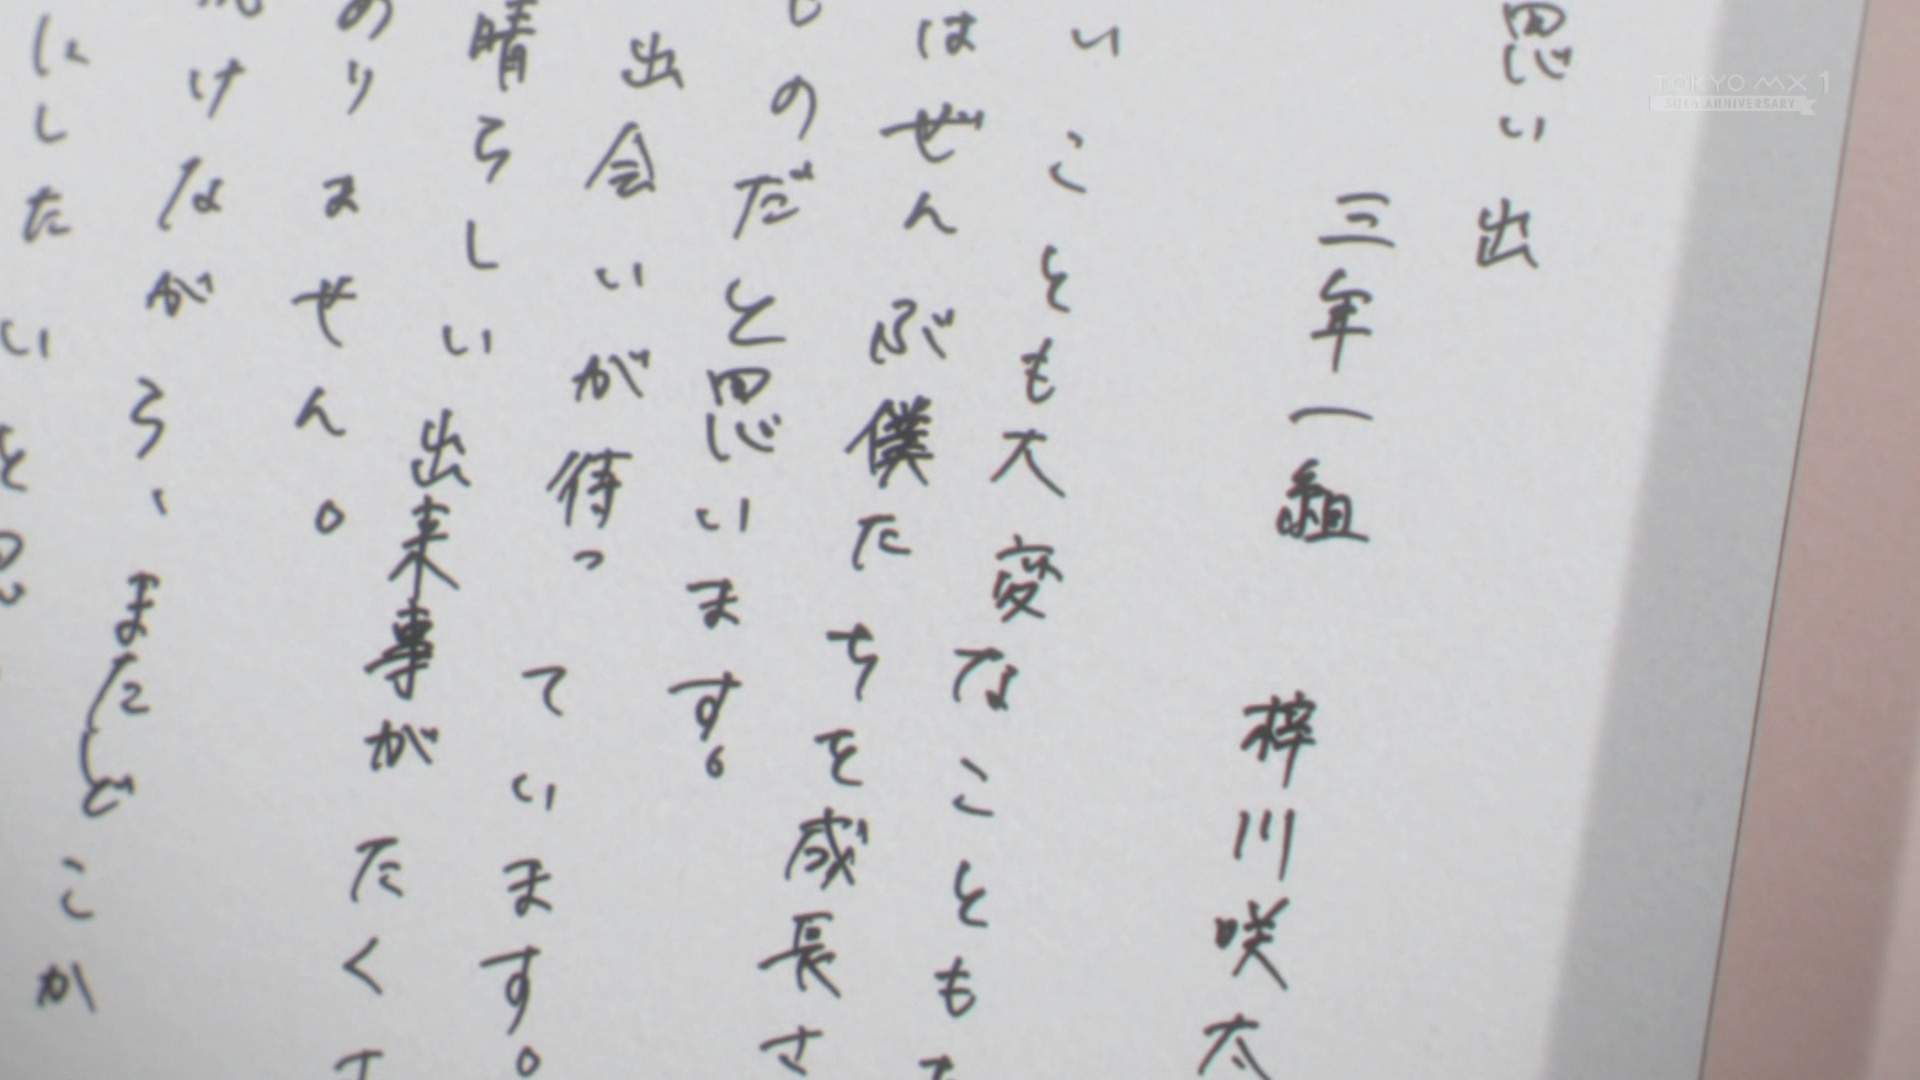 思い出
三年一組 梓川咲太
いことも大変なことも
はぜんぶ僕たちを成長さ
のだと思います。
出会いが待っています。
晴らしい出来事がたくさ
ありません。
けながら、まだどこか
にしたいと思
TOKYO MX 1
30TH ANNIVERSARY